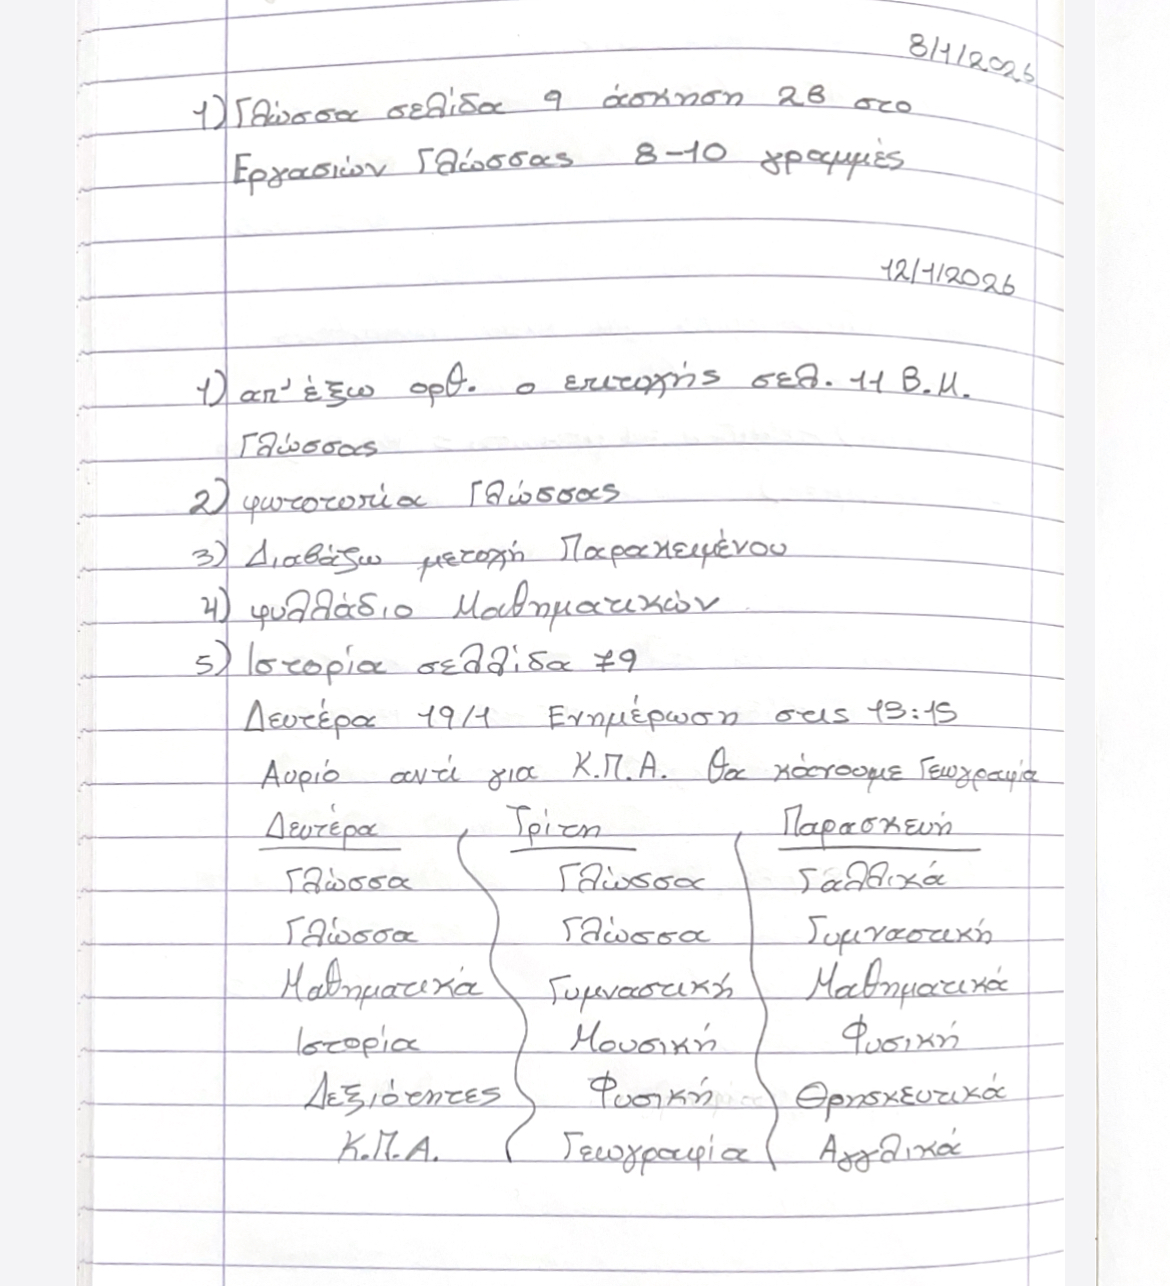 8/1/2026
1) Γλώσσα σελίδα 9 άσκηση 2Β στο
Εργασιών Γλώσσας 8-10 γραμμές
12/1/2026
1) απ' έξω ορθ. ο επιτοχής σελ. 11 Β.Μ.
Γλώσσας
2) φωτοτοπία Γλώσσας
3) Διαβάζω μετοχή Παρακειμένου
4) φυλλάδιο Μαθηματικών
5) Ιστορία σελλίδα 79
Δευτέρα 19/1 Ενημέρωση στις 13:15
Αυριό αντί για Κ.Π.Α. θα κάνουμε Γεωγραφία
Δευτέρα Τρίτη Παρασκευή
Γλώσσα Γλώσσα Γαλλικά
Γλώσσα Γλώσσα Γυμναστική
Μαθηματικά Γυμναστική Μαθηματικά
Ιστορία Μουσική Φυσική
Δεξιότητες Φυσική Θρησκευτικά
Κ.Π.Α. Γεωγραφία Αγγλικά